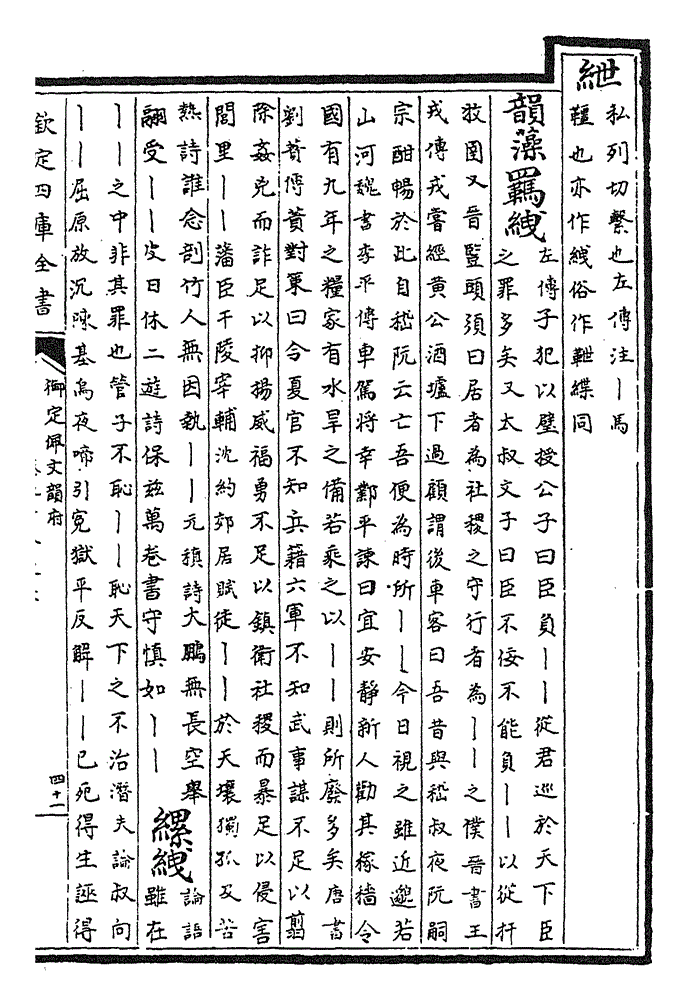 紲
私列切繫也左傳注丨馬
韁也亦作絏俗作靾緤同
韻藻羈絏
左傳子犯以璧授公子曰臣負丨丨從君巡於天下臣
之罪多矣又太叔文子曰臣不佞不能負丨丨以從扞
牧圉又晉豎頭須曰居者為社稷之守行者為丨丨之僕晉書王
戎傳戎嘗經黄公酒壚下過顧謂後車客曰吾昔與嵇叔夜阮嗣
宗酣暢於此自嵇阮云亡吾便為時所丨丨今日視之雖近邈若
山河魏書李平傳車駕將幸鄴平諫曰宜安靜新人勸其稼穡令
國有九年之糧家有水旱之備若乘之以丨丨則所廢多矣唐書
劉蕡傳蕡對策曰今夏官不知兵籍六軍不知武事謀不足以翦
除姦兇而詐足以抑揚威福勇不足以鎮衛社稷而暴足以侵害
閭里丨丨藩臣干陵宰輔沈約郊居賦徒丨丨於天壤獨孤及苦
熱詩誰念剖竹人無因執丨丨元稹詩大鵬無長空舉
翮受丨丨皮日休二遊詩保兹萬卷書守慎如丨丨
縲絏
論語
雖在
丨丨之中非其罪也管子不恥丨丨恥天下之不治潛夫論叔向
丨丨屈原放沉陳基烏夜啼引寃獄平反解丨丨已死得生誣得
欽定四庫全書
御定佩文韻府
四十一